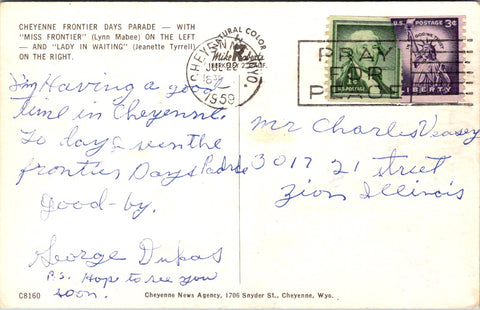 CHEYENNE FRONTIER DAYS PARADE — WITH
"MISS FRONTIER" (Lynn Mabee) ON THE LEFT
— AND "LADY IN WAITING" (Jeanette Tyrrell)
ON THE RIGHT.
I'm Having a good
time in Cheyenne.
To day I seen the
frontier Days Padrde
Good-by.
George Dukas
P.S. Hope to see you
soon.
C8160
NATURAL COLOR
Mike Roberts
BERKELEY
CHEYENNE WYO.
JUL 22
1959
PRAY
FOR
PEACE
1¢
U.S. POSTAGE
U.S. POSTAGE 3¢
IN GOD WE TRUST
LIBERTY
Mr Charles Veasey
3017 21 street
Zion Illinois
Cheyenne News Agency, 1706 Snyder St., Cheyenne, Wyo.